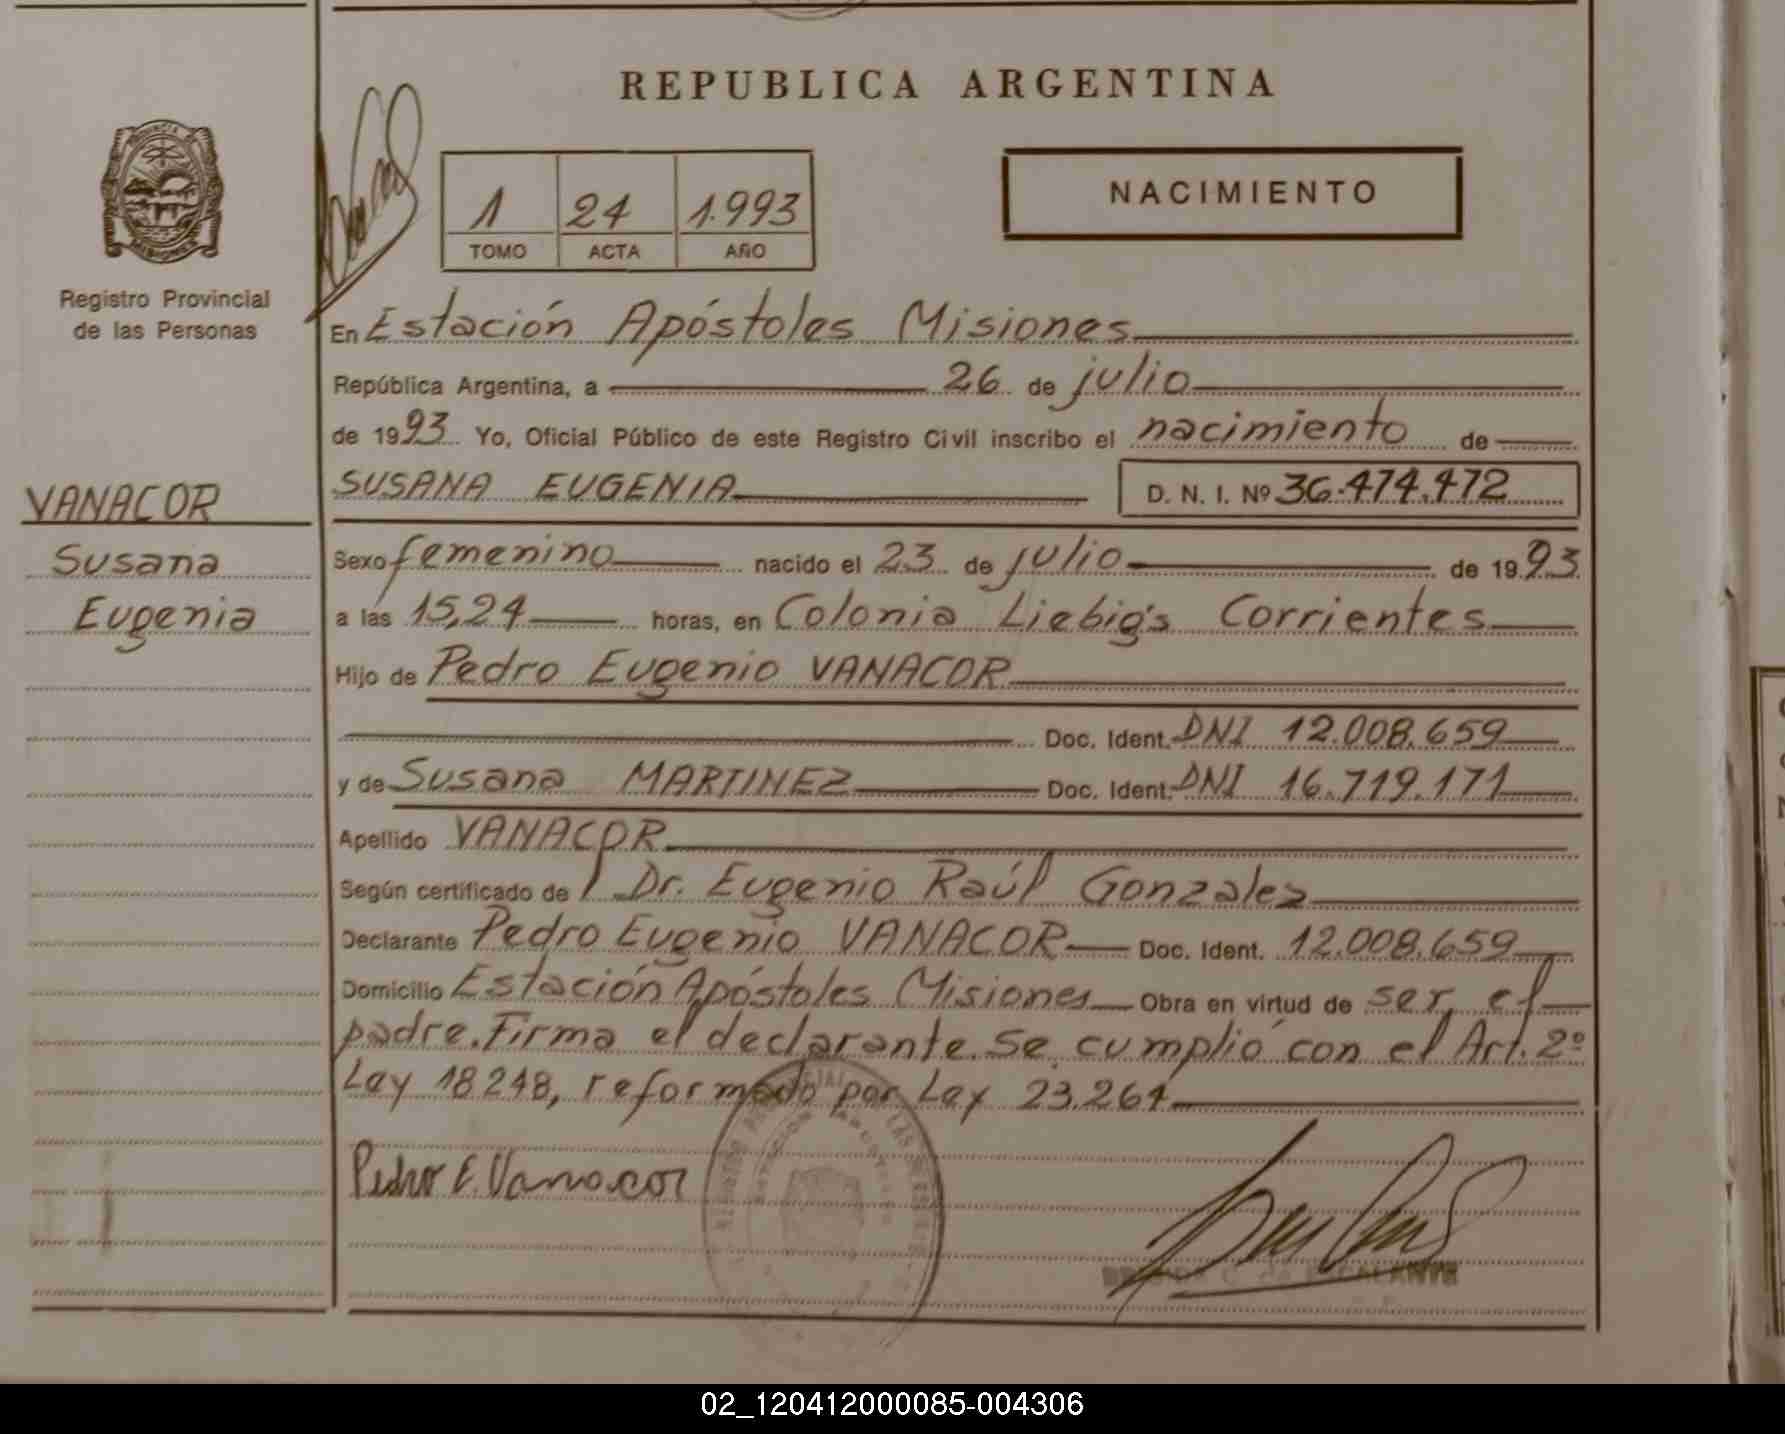 REPUBLICA ARGENTINA
NACIMIENTO
1 24 1.993
TOMO ACTA AÑO
Registro Provincial
de las Personas
VANACOR
Susana
Eugenia
En Estación Apóstoles Misiones
República Argentina, a 26 de julio
de 1993 Yo, Oficial Público de este Registro Civil inscribo el nacimiento de
SUSANA EUGENIA D. N. I. Nº 36.474.472
Sexo femenino nacido el 23 de julio de 1993
a las 15,24 horas, en Colonia Liebig's Corrientes
Hijo de Pedro Eugenio VANACOR
Doc. Ident. DNI 12.008.659
y de Susana MARTINEZ Doc. Ident. DNI 16.719.171
Apellido VANACOR
Según certificado de Dr. Eugenio Raúl Gonzalez
Declarante Pedro Eugenio VANACOR Doc. Ident. 12.008.659
Domicilio Estación Apóstoles Misiones Obra en virtud de ser el
padre. Firma el declarante. Se cumplió con el Art. 2º
Ley 18248, reformado por Ley 23.264
Pedro E. Vanacor
de ESCALANTE
02_120412000085-004306